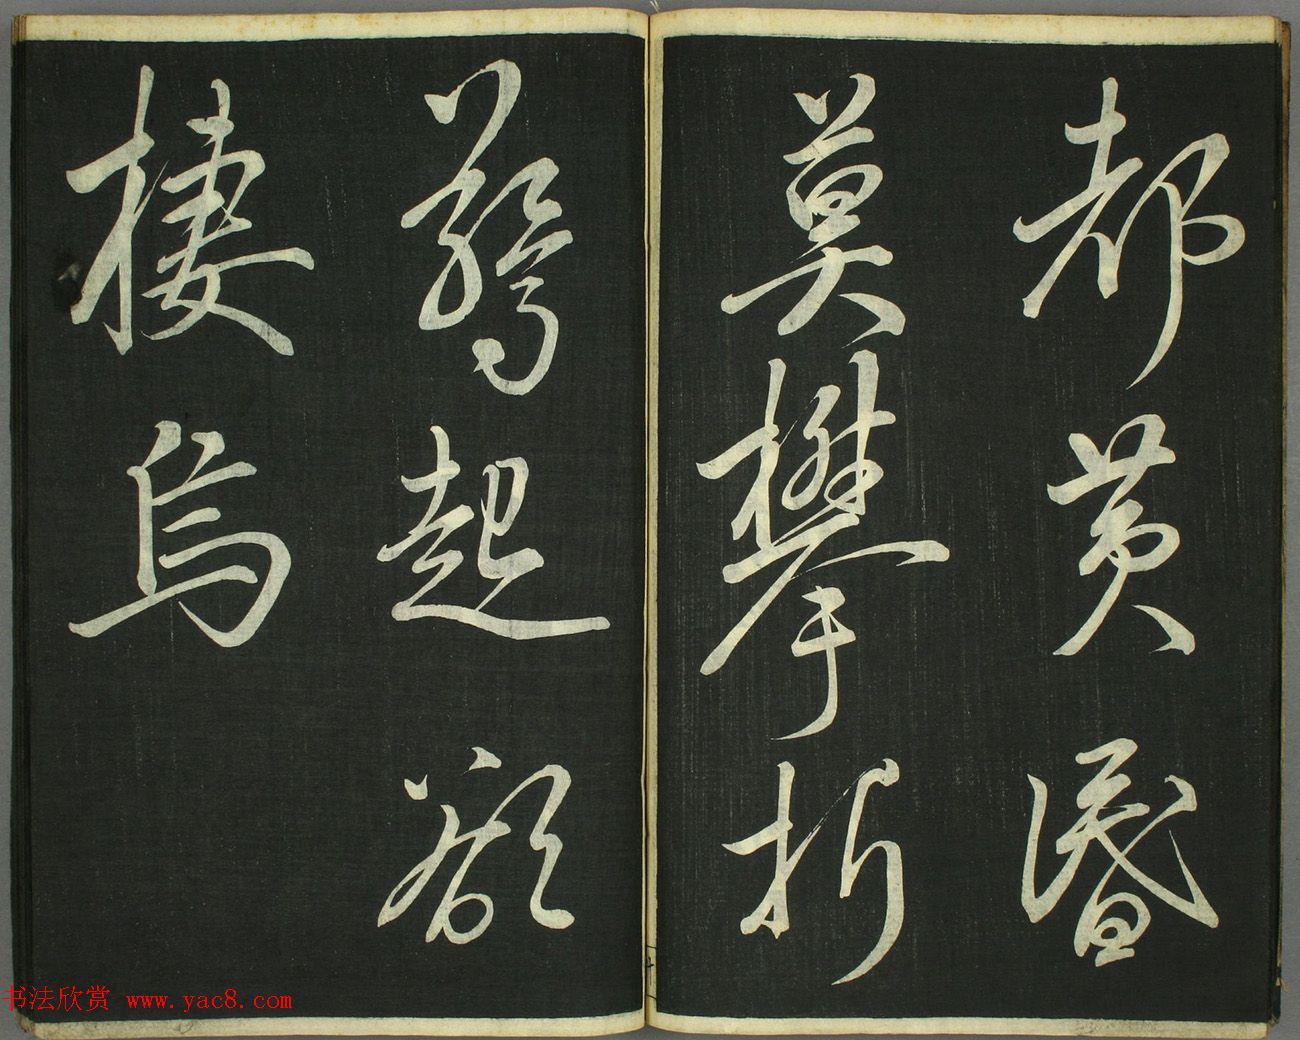 都黃昬
莫攀折
驚起欲
棲烏
书法欣赏 www.yac8.com